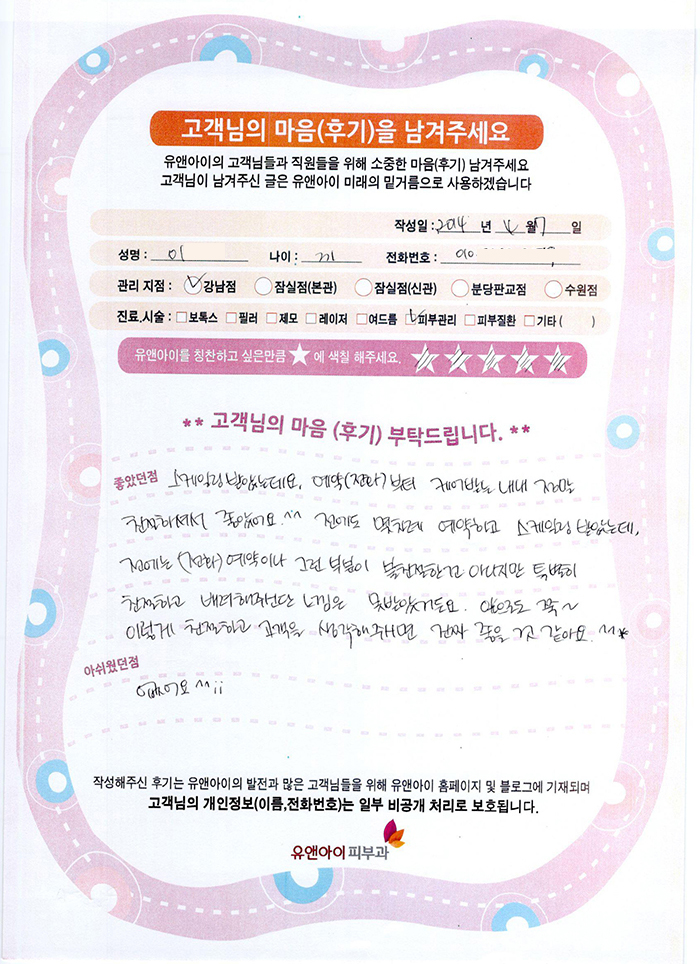 고객님의 마음(후기)을 남겨주세요
유앤아이의 고객님들과 직원들을 위해 소중한 마음(후기) 남겨주세요
고객님이 남겨주신 글은 유앤아이 미래의 밑거름으로 사용하겠습니다
작성일 : 2014 년 월 7 일
성명 : 이 나이 : 전화번호 : 010
관리 지점 : 강남점 잠실점(본관) 잠실점(신관) 분당판교점 수원점
진료.시술 : 보톡스 필러 제모 레이저 여드름 피부관리 피부질환 기타 ( )
유앤아이를 칭찬하고 싶은만큼 ★ 에 색칠 해주세요. ★★★★★
** 고객님의 마음 (후기) 부탁드립니다. **
좋았던점 스케일링 받았는데요, 예약(전화)부터 케어받는 내내 정말
친절하셔서 좋았어요.^^ 전에도 몇차례 예약하고 스케일링 받았는데,
전에는 (전화)예약이나 그런 부분이 불친절한건 아니지만 특별히
친절하고 배려해주신단 느낌은 못받았거든요. 앞으로도 꾹~
이렇게 친절하고 고객을 생각해주시면 진짜 좋을 것 같아요. ^^*
아쉬웠던점
없어요 ^^;;
작성해주신 후기는 유앤아이의 발전과 많은 고객님들을 위해 유앤아이 홈페이지 및 블로그에 기재되며
고객님의 개인정보(이름,전화번호)는 일부 비공개 처리로 보호됩니다.
유앤아이피부과